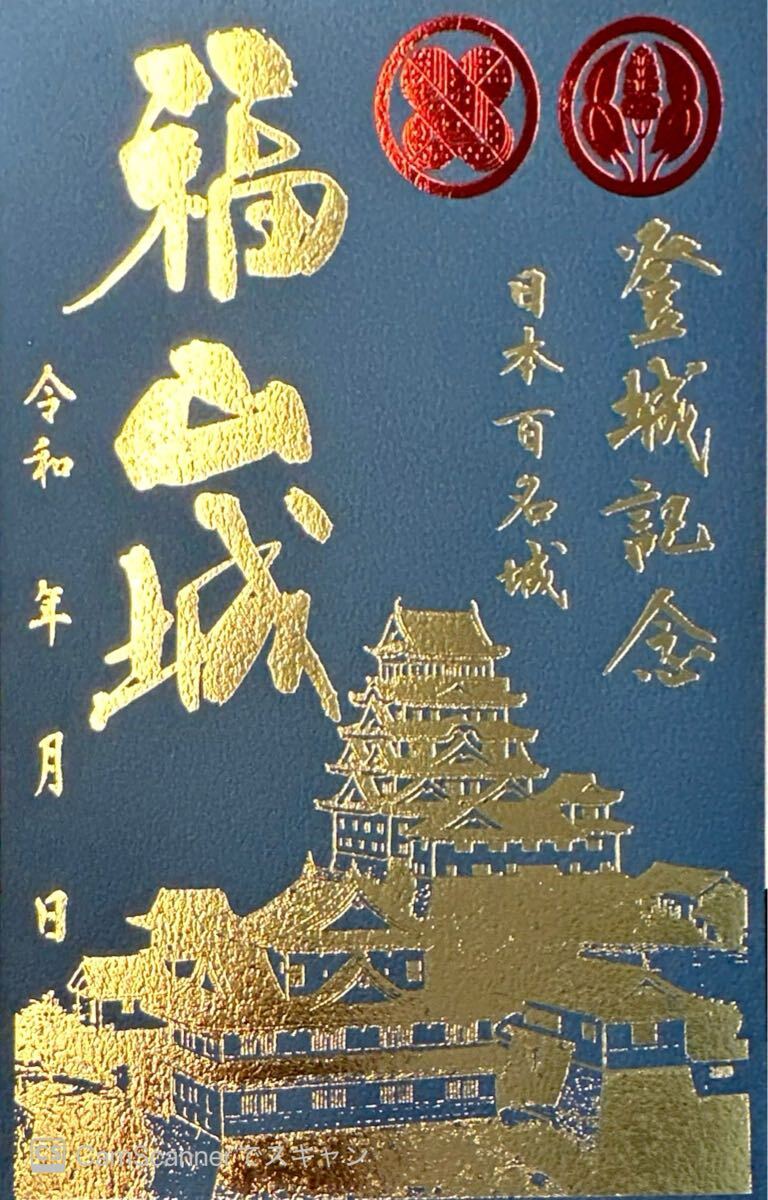 登城記念
日本百名城
福山城
令和 年 月 日
CamScannerでスキャン